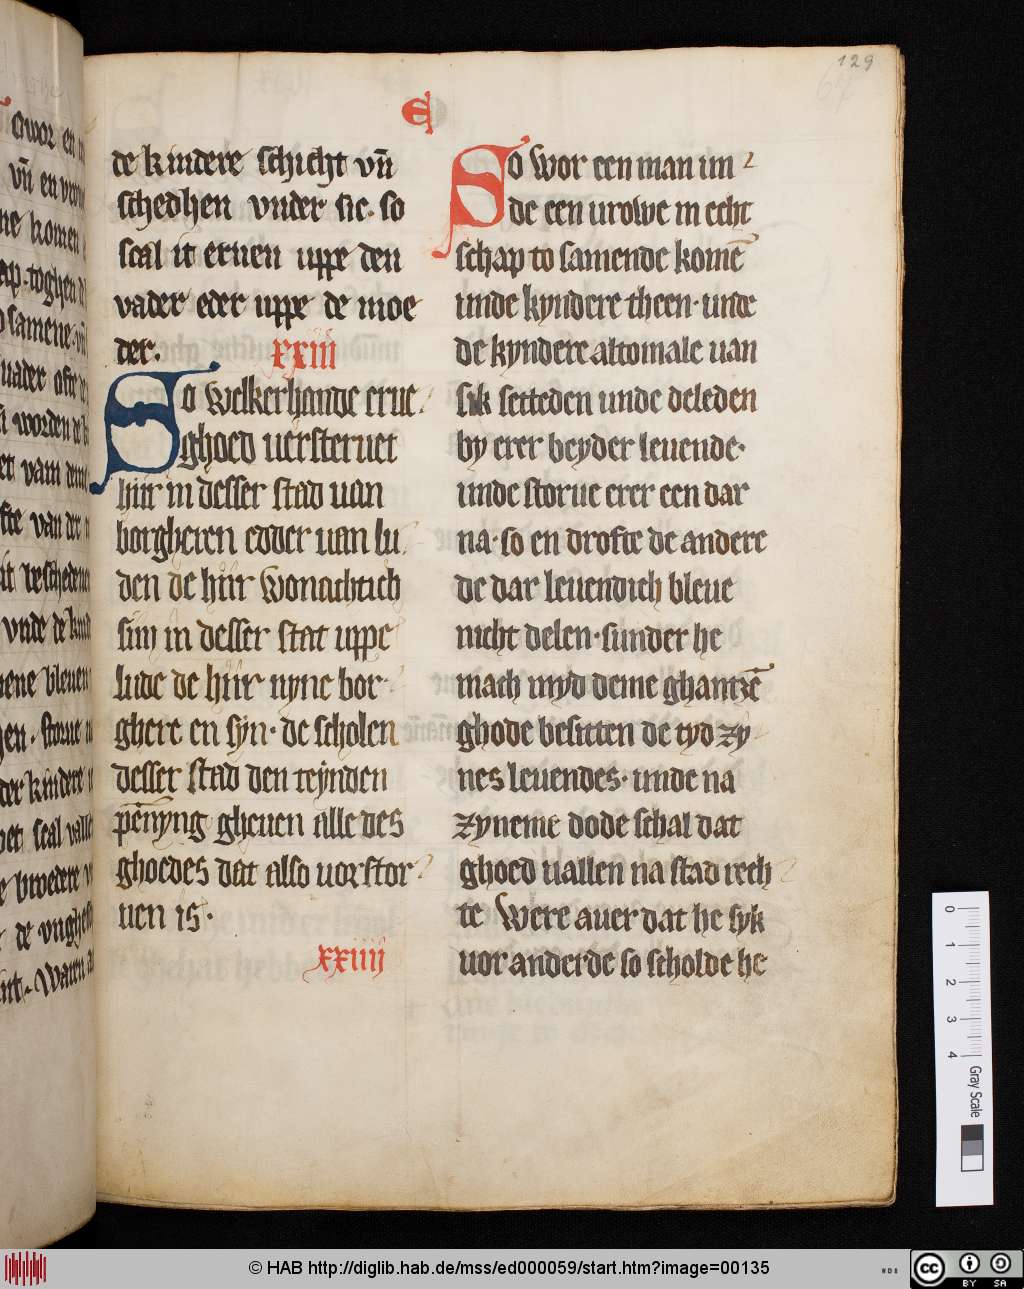 129
67
E
de kindere schicht vn̄
schedhen vnder sic· so
scal it eruen uppe den
vader eder uppe de moe
der·
xxiii
So welkerhande erue
ghoed uersteruet
hiir in desser stad uan
borgheren edder uan lu
den de hiir wonachtich
sin in desser stat uppe
lude de hiir nyne bor
ghere en syn· de scholen
desser stad den teynden
pēnyng gheuen alle des
ghoedes dat also uorstor
uen is·
xxiiij
So wor een man un
de een urowe in echt
schap to samende komē
unde kyndere theen· unde
de kyndere altomale uan
sik setteden unde deleden
by erer beyder leuende·
unde storue erer een dar
na· so en drofte de andere
de dar leuendich bleue
nicht delen· sunder he
mach myd deme ghantzē
ghode besitten de tyd zy
nes leuendes· unde na
zyneme dode schal dat
ghoed uallen na stad rech
te Were auer dat he syk
uor anderde so scholde he
0 1 2 3 4 Gray Scale
© HAB http://diglib.hab.de/mss/ed000059/start.htm?image=00135
WDB
cc BY SA